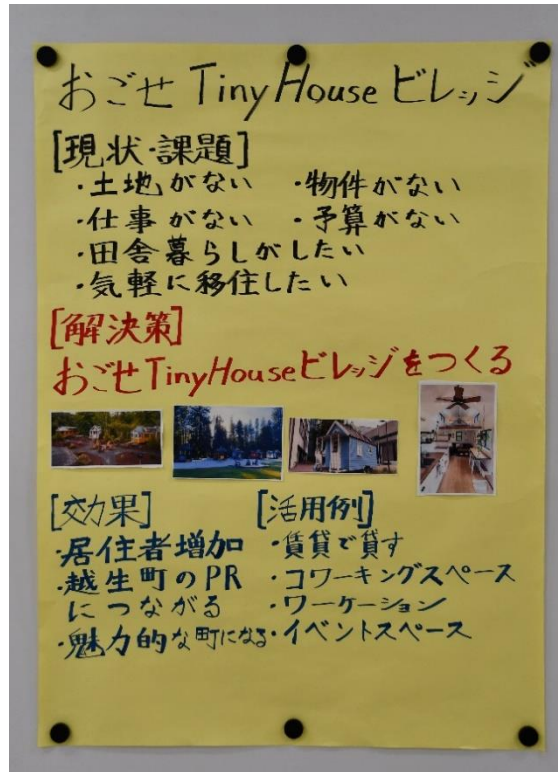 おごせ Tiny House ビレッジ
[現状・課題]
・土地がない ・物件がない
・仕事がない ・予算がない
・田舎暮らしがしたい
・気軽に移住したい
[解決策]
おごせTinyHouseビレッジをつくる
[効果]
・居住者増加
・越生町のPR
につながる
・魅力的な町になる
[活用例]
・賃貸で貸す
・コワーキングスペース
・ワーケーション
・イベントスペース